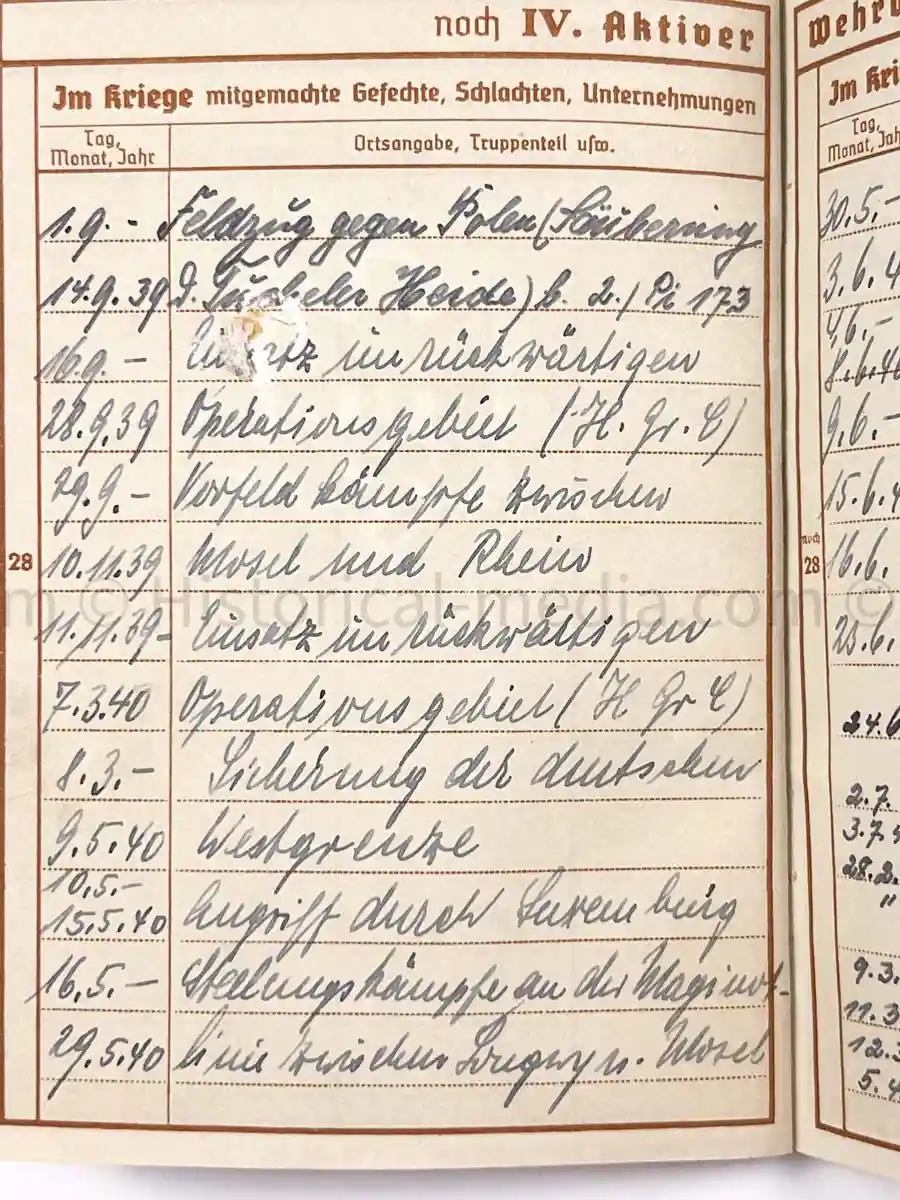 noch IV. Aktiver
Im Kriege mitgemachte Gefechte, Schlachten, Unternehmungen
Tag, Monat, Jahr
Ortsangabe, Truppenteil usw.
1.9. - Feldzug gegen Polen (Säuberung
14.9.39 d. Tucheler Heide) b. 2./Pi 173
16.9. - Einsatz im rückwärtigen
28.9.39 Operationsgebiet (H. Gr. C)
29.9. - Vorfeldkämpfe zwischen
28
10.11.39 Mosel und Rhein
11.11.39 - Einsatz im rückwärtigen
7.3.40 Operationsgebiet (H Gr C)
8.3. - Sicherung der deutschen
9.5.40 Westgrenze
10.5. -
15.5.40 Angriff durch Luxemburg
16.5. - Stellungskämpfe an der Maginot-
29.5.40 linie zwischen Longwy u. Mosel
Wehr
Im Kri
Tag,
Monat, Jah
30.5. -
3.6.4
4.6. -
8.6.40
9.6. -
15.6.4
noch
28
16.6.
23.6.
24.6
2.7.
3.7.
28.2.
"
9.3.
11.3
12.3
5.4
m © Historical-media.com ©